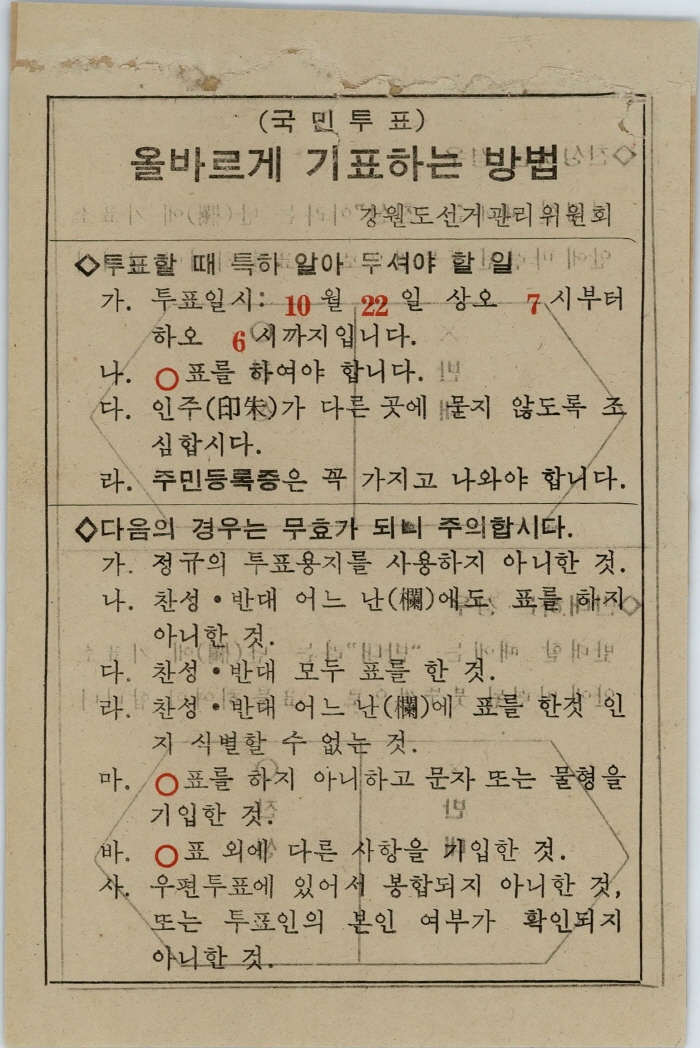 (국민투표)
올바르게 기표하는 방법
강원도선거관리위원회
◇투표할 때 특히 알아 두셔야 할 일
가. 투표일시: 10월 22일 상오 7시부터
하오 6시까지입니다.
나. ○표를 하여야 합니다.
다. 인주(印朱)가 다른 곳에 묻지 않도록 조
심합시다.
라. 주민등록증은 꼭 가지고 나와야 합니다.
◇다음의 경우는 무효가 되니 주의합시다.
가. 정규의 투표용지를 사용하지 아니한 것.
나. 찬성·반대 어느 난(欄)에도 표를 하지
아니한 것.
다. 찬성·반대 모두 표를 한 것.
라. 찬성·반대 어느 난(欄)에 표를 한것 인
지 식별할 수 없는 것.
마. ○표를 하지 아니하고 문자 또는 물형을
기입한 것.
바. ○표 외에 다른 사항을 기입한 것.
사. 우편투표에 있어서 봉합되지 아니한 것,
또는 투표인의 본인 여부가 확인되지
아니한 것.